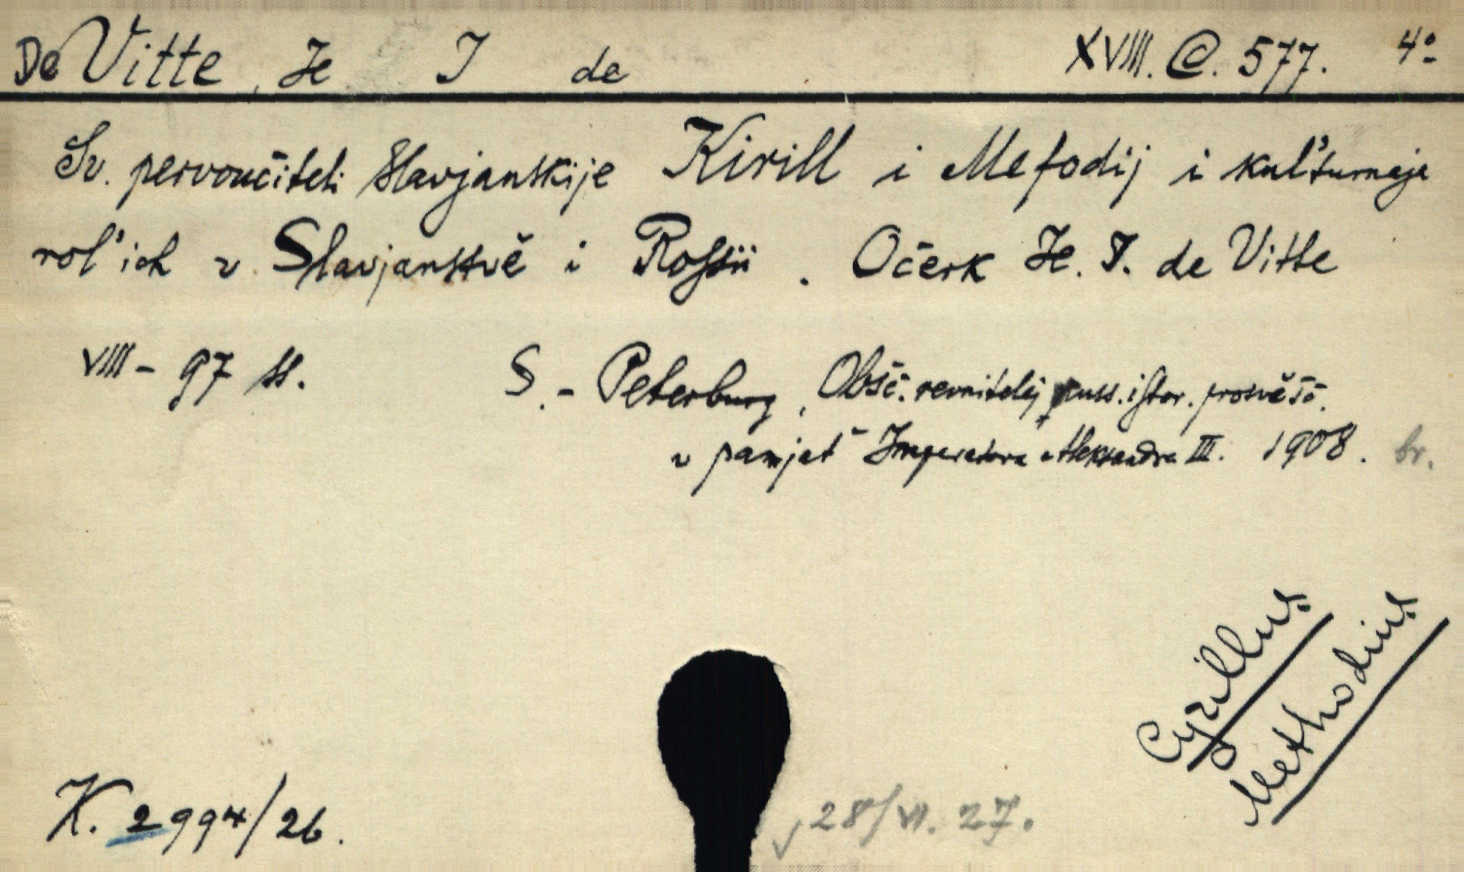 De Vitte, Je I de XVIII. C. 577. 4º
Sv. pervoučiteli slavjanskije Kirill i Mefodij i kul'turnaja
rol' ich v Slavjanstvě i Rossii. Očerk Je. I. de Vitte
VIII - 97 ss. S. - Peterburg, Obšč. revnitelej russ. istor. prosvěšč.
v pamjat' Imperatora Aleksandra III. 1908. br.
Cyrillus
Methodius
K. 2994/26.
28/VI. 27.